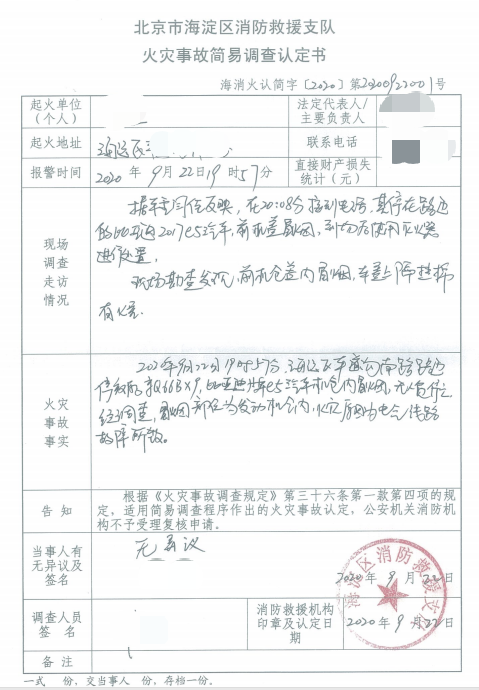 北京市海淀区消防救援支队
火灾事故简易调查认定书
海消火认简字〔2020〕第20200922001号
起火单位
（个人）
法定代表人/
主要负责人
起火地址
海淀区
联系电话
报警时间
2020年9月22日19时57分
直接财产损失
统计（元）
现场
调查
走访
情况
据车主同住反映，在20:08分接到电话，其停在路边
的比亚迪2017e5汽车，前机盖冒烟，到场后使用灭火器
进行处置。
现场勘查发现，前机仓盖内冒烟，车上
有火
火灾
事故
事实
2020年9月22日19时57分，海淀区南路路边
停放的京Q66BX9，比亚迪牌e5汽车机仓内冒烟，无人员伤亡
经调查，冒烟部位为发动机仓内，火灾原因为电气线路
故障所致。
告知
根据《火灾事故调查规定》第三十六条第一款第四项的规
定，适用简易调查程序作出的火灾事故认定，公安机关消防机
构不予受理复核申请。
当事人有
无异议及
签名
无异议
2020年9月22日
调查人员
签名
消防救援机构
印章及认定日
期
2020年9月22日
海淀区消防救援支队
备注
一式 份，交当事人 份，存档一份。